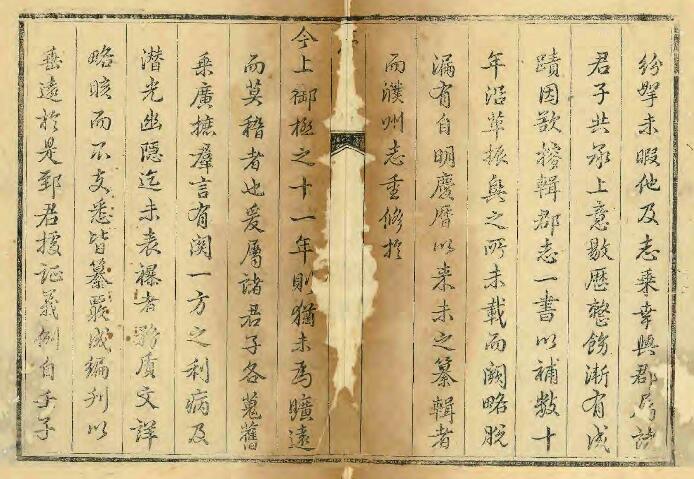 紛拏未暇他及志乘幸與郡屬諸
君子共承上意敭歷整飭漸有成
蹟因欲搜輯郡志一書以補數十
年沿革振興之所未載而闕略脫
漏有自明慶曆以來未之纂輯者
而濮州志重修於
今上御極之十一年則猶未為曠遠
而莫稽者也爰屬諸君子各蒐舊
乘廣摭羣言有関一方之利病及
潛光幽隱迄未表襮者務質文詳
略晐而不支悉皆纂聚成編刊以
垂遠於是郅君援証義例自手子